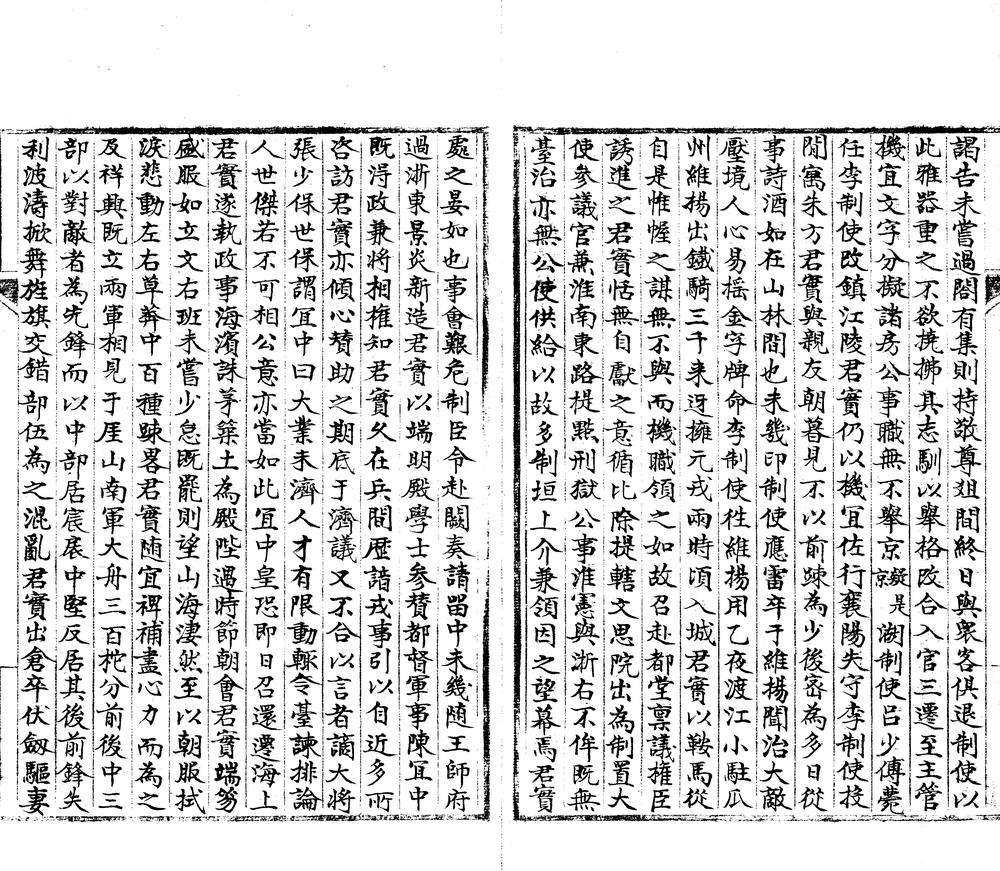 謁告未嘗過閤有集則持敬尊俎間終日與衆客俱退制使以
此雅器重之不欲撓拂其志馴以舉格改合入官三遷至主管
機宜文字分擬諸房公事職無不舉京疑是京湖制使呂少傅薨
任李制使改鎮江陵君實仍以機宜佐行襄陽失守李制使投
閒寓朱方君實與親友朝暮見不以前踈為少後宻為多日從
事詩酒如在山林間也未幾印制使應雷卒于維揚聞治大敵
壓境人心易揺金字牌命李制使徃維揚用乙夜渡江小駐瓜
州維揚出鐵騎三千来迓擁元戎兩時頃入城君實以鞍馬從
自是帷幄之謀無不與而機職領之如故召赴都堂禀議權臣
誘進之君實恬無自獻之意循比除提轄文思院出為制置大
使參議官兼淮南東路提㸃刑獄公事淮憲與浙右不侔既無
䑓治亦無公使供給以故多制垣上介兼領因之望幕焉君實
處之晏如也事會艱危制臣令赴闕奏請畱中未幾随王師府
過浙東景炎新造君實以端明殿學士參賛都督軍事陳宜中
既淂政兼將相權知君實久在兵間歴諳戎事引以自近多所
咨訪君實亦傾心賛助之期底于濟議又不合以言者謫大將
張少保世保謂宜中曰大業未濟人才有限動輒令臺諫排論
人世傑若不可相公意亦當如此宜中皇恐即日召還遷海上
君實遂執政事海濱誅茅築土為殿陛遇時節朝會君實端笏
盛服如立文右班未嘗少怠既罷則望山海淒然至以朝服拭
淚悲動左右草莽中百種踈畧君實随宜裨補盡心力而為之
及祥興既立兩軍相見于厓山南軍大舟三百柁分前後中三
部以對敵者為先鋒而以中部居宸扆中堅反居其後前鋒失
利波濤掀舞旌旗交錯部伍為之混亂君實出倉卒伏劔驅妻